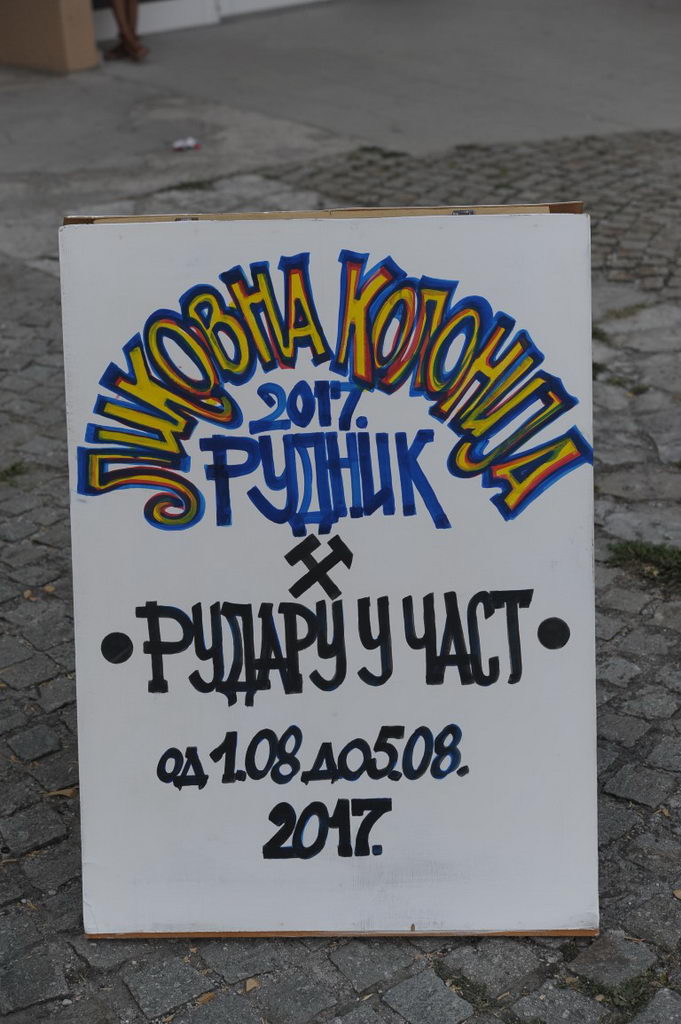 ЛИКОВНА КОЛОНИЈА
2017.
РУДНИК
• РУДАРУ У ЧАСТ •
од 1.08 до 5.08.
2017.